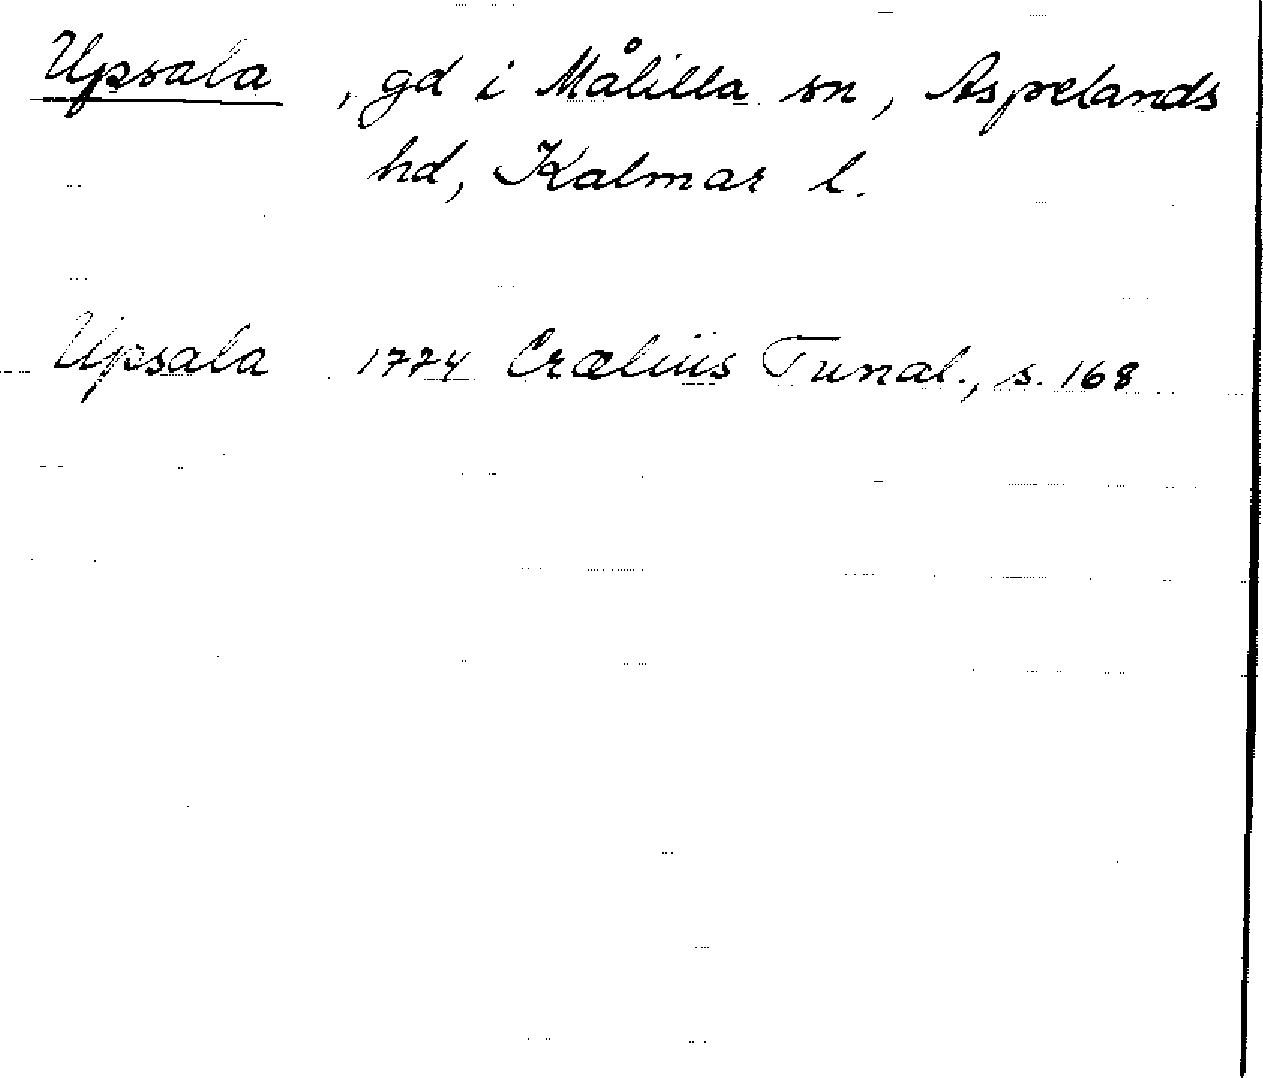 Upsala, gd i Målilla sn, Aspelands
hd, Kalmar l.
Upsala 1774 Crælius Tunal., s. 168